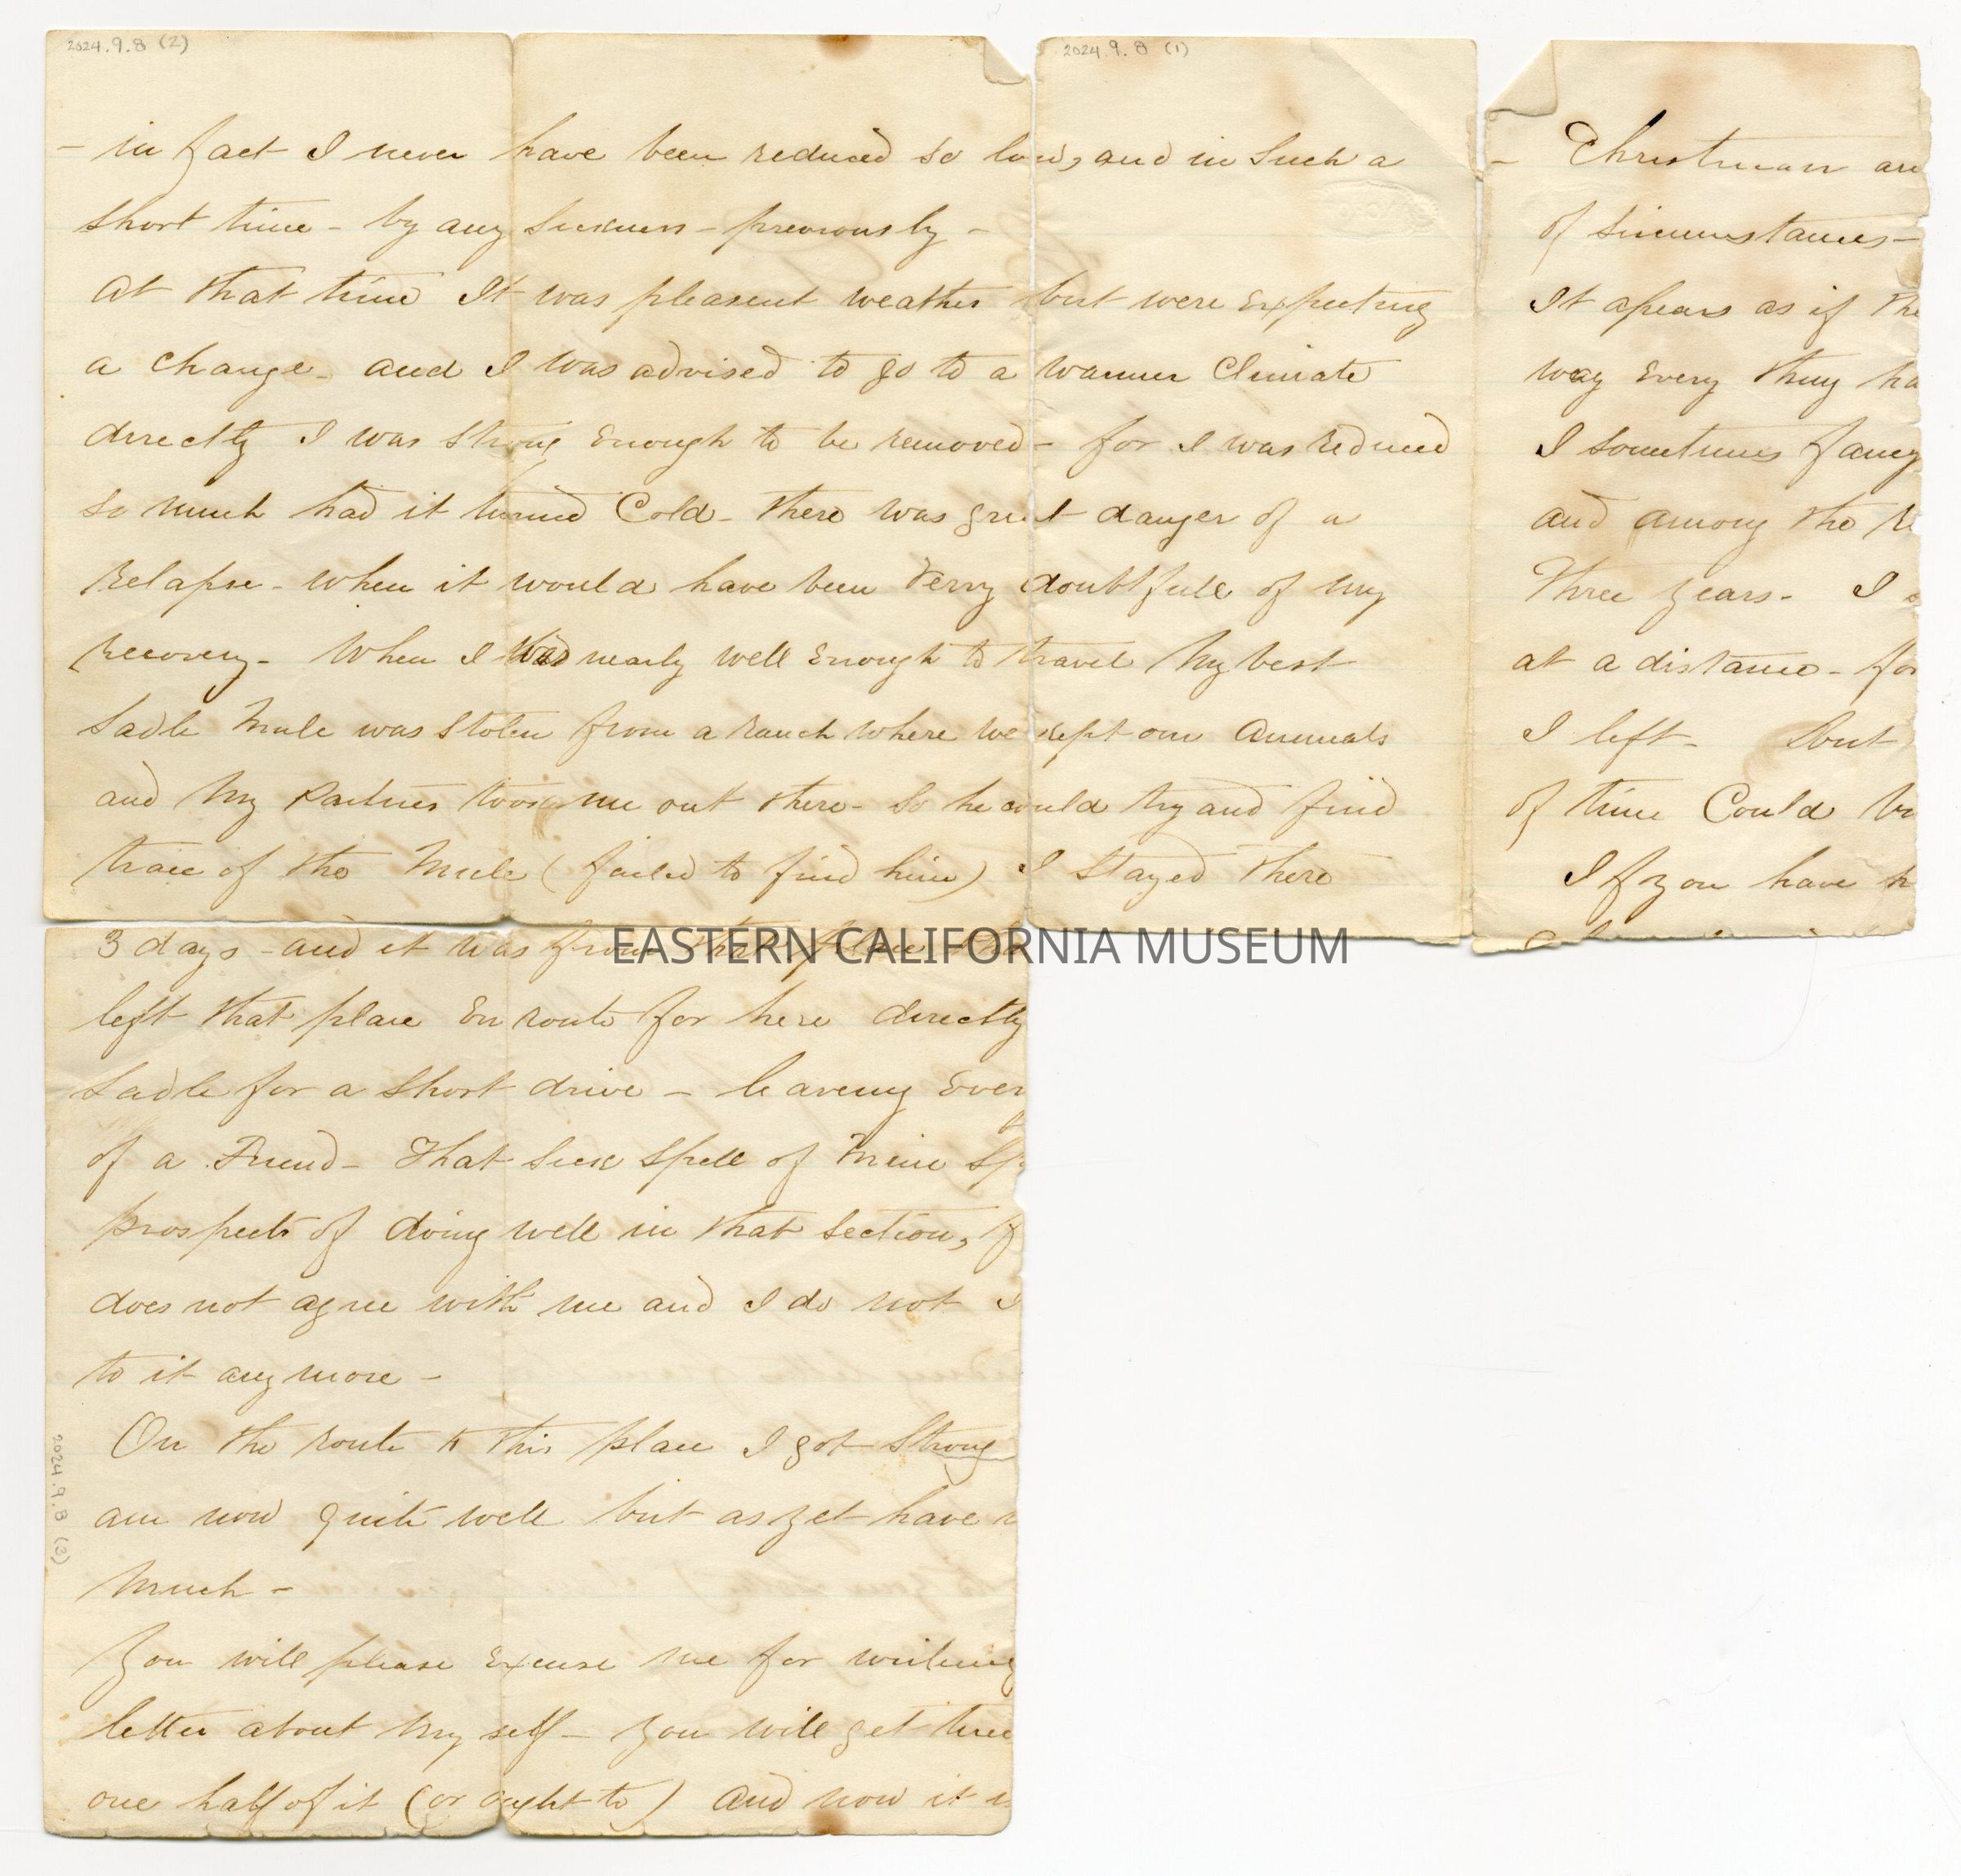 2024.9.8 (2)
2024.9.8 (1)
- in fact I never have been reduced so low, and in such a
short time - by any Sickness - previously -
At that time It was pleasent weather but were Expecting
a change - and I was advised to go to a warmer Climate
directly I was strong Enough to be removed - for I was reduced
so much had it turned Cold - there was great danger of a
Relapse - when it would have been Verry doubtfull of my
Recovery - When I Was nearly well Enough to travel My best
Sadle Mule was Stolen from a ranch where we kept our Animals
and My Partner took me out there - So he could try and find
trace of the Mule ( failed to find him ) I Stayed there
3 days - and it was from that place
left that place En route for here directly
Sadle for a Short drive - leaveing Ever
of a Friend - That Sick Spell of Mine Sp
prospects of doing well in that Section, if
does not agree with me and I do not
to it any more -
On the route to this place I got Strong
am now quite well but as yet have
Much -
You will please Excuse me for writeing
letter about My self - you will get
one half of it (or ought to) And now it
2024.9.8 (3)
- Christmas an
of Sircumstances -
It apears as if the
way Every thing ha
I sometimes fancy
and among the
Three years - I
at a distance - for
I left - but
of time Could
If you have
EASTERN CALIFORNIA MUSEUM